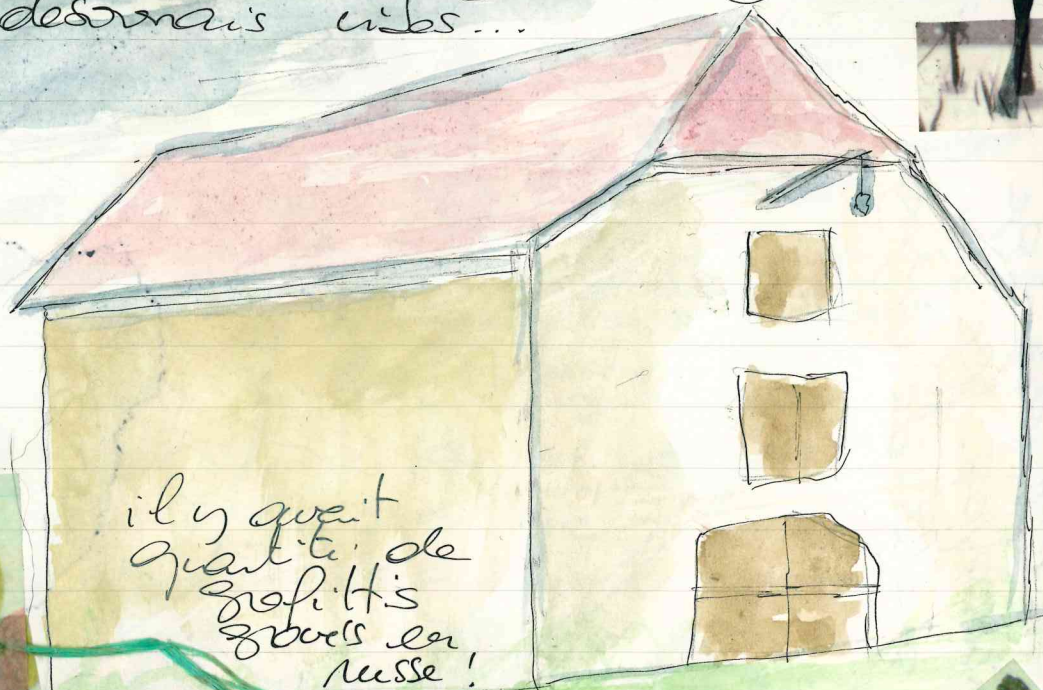 désormais vides...
il y avait
quantité de
grafittis
gravés en
russe !